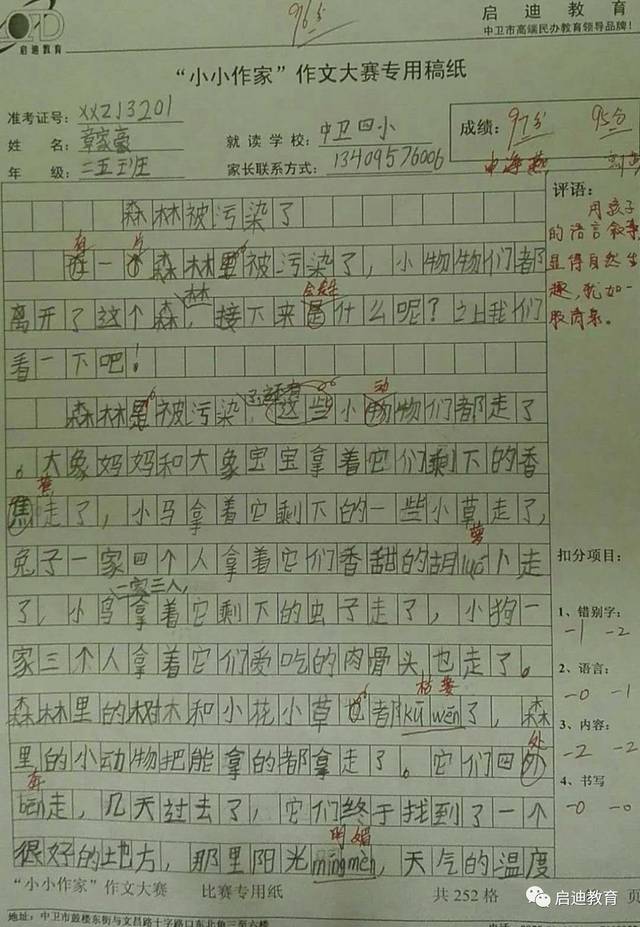 96分
启迪教育
启迪教育
中卫市高端民办教育领导品牌!
“小小作家”作文大赛专用稿纸
准考证号: XXZ13201
姓 名: 章家豪
就读学校: 中卫四小
年 级: 二五班
家长联系方式: 13409576006
成绩: 97分 95分
评语:
用孩子
的语言叙事
显得自然生
趣,犹如一
股清泉。
森林被污染了
有 片
在一个森林里被污染了,小物物们都
林 会发生
离开了这个森,接下来是什么呢?让我们
看一下吧!
动
森林里被污染,这些小物物们都走了
。大象妈妈和大象宝宝拿着它们剩下的香
蕉
焦走了,小马拿着它剩下的一些小草走了,
萝
兔子一家四个人拿着它们香甜的胡luó卜走
一家三人,
了,小鸟拿着它剩下的虫子走了,小狗一
家三个人拿着它们爱吃的肉骨头也走了。
枯萎
森林里的树木和小花小草也都kū wěn了,森
处
里的小动物把能拿的都拿走了。它们四外
奔
bēn走,几天过去了,它们终于找到了一个
明媚
很好的地方,那里阳光míngmèn,天气的温度
扣分项目:
1、错别字:
-1 -2
2、语言:
-0 -1
3、内容:
-2 -2
4、书写
-0 -0
“小小作家”作文大赛 比赛专用纸 共 252 格 页
启迪教育
地址: 中卫市鼓楼东街与文昌路十字路口东北角三至六楼